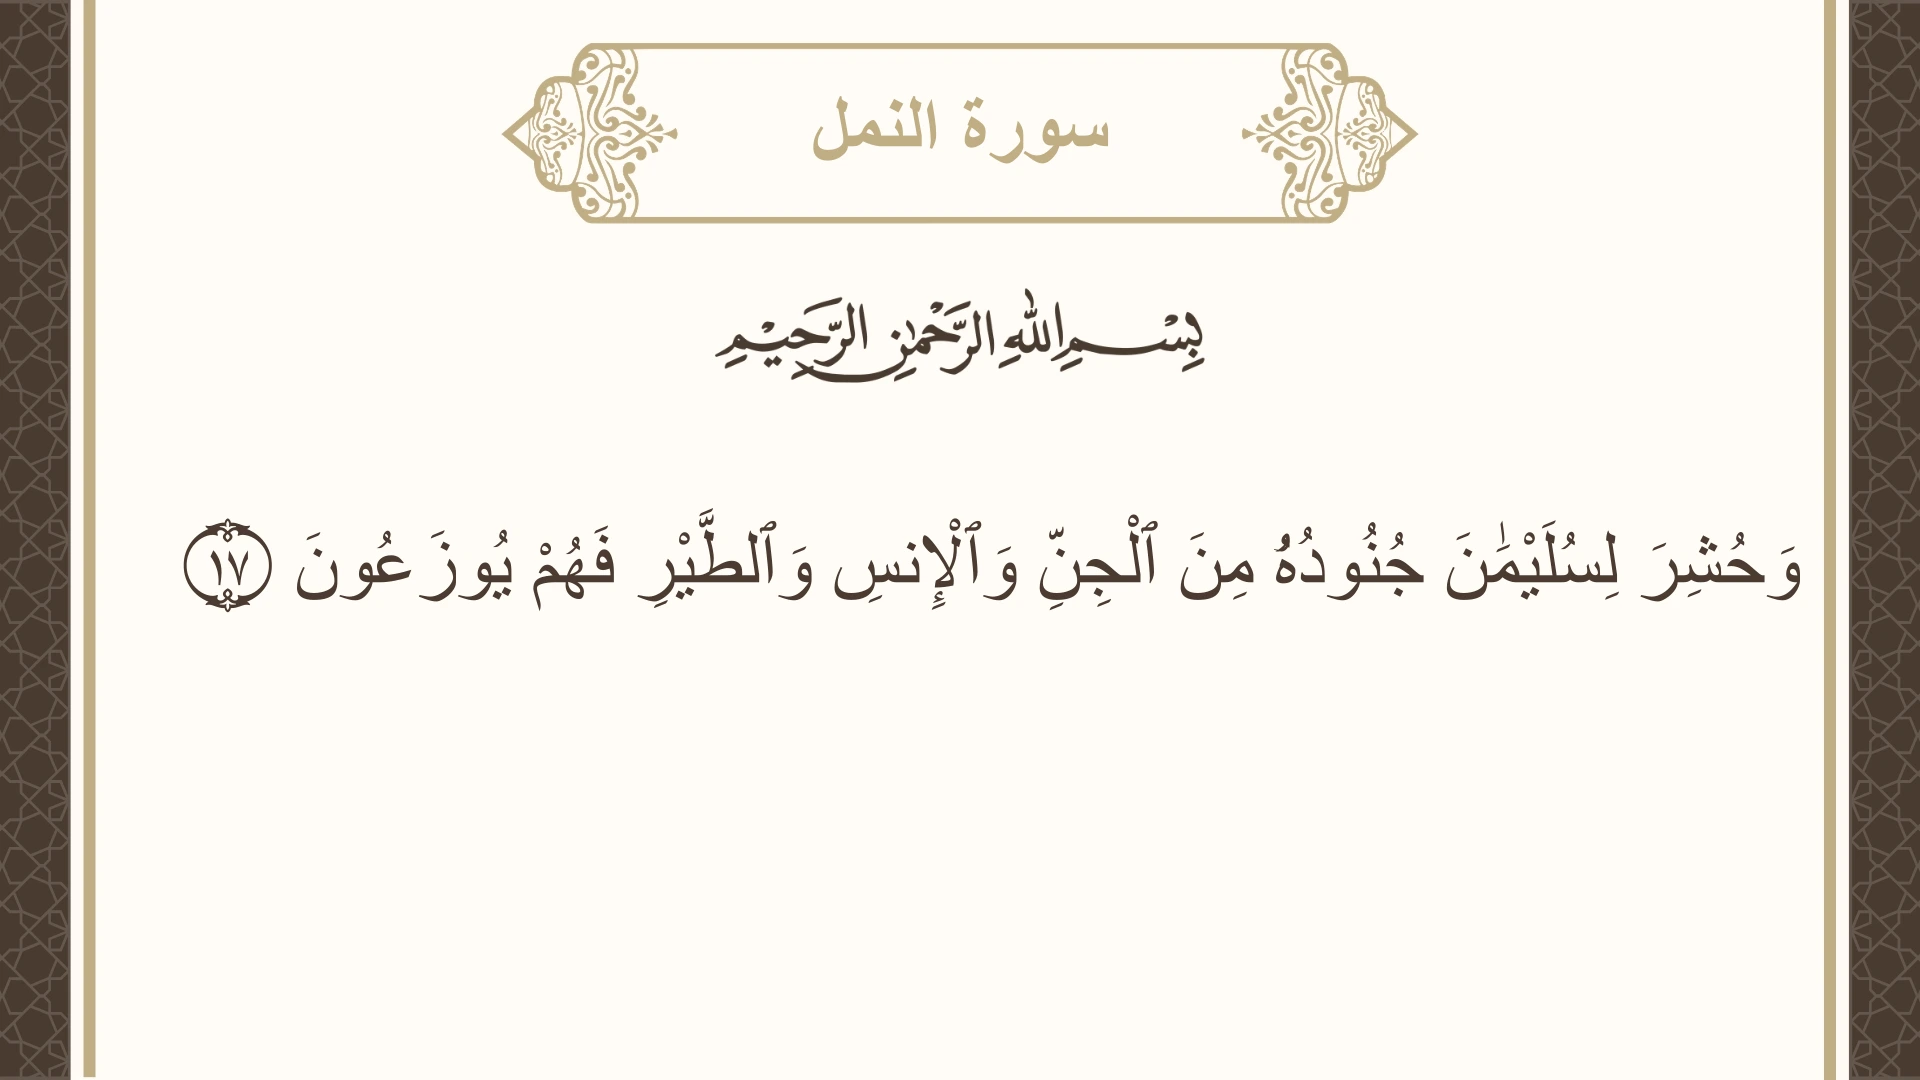 سورة النمل
بِسْمِ اللهِ الرَّحْمٰنِ الرَّحِيْمِ
وَحُشِرَ لِسُلَيْمَٰنَ جُنُودُهُۥ مِنَ ٱلْجِنِّ وَٱلْإِنسِ وَٱلطَّيْرِ فَهُمْ يُوزَعُونَ ١٧